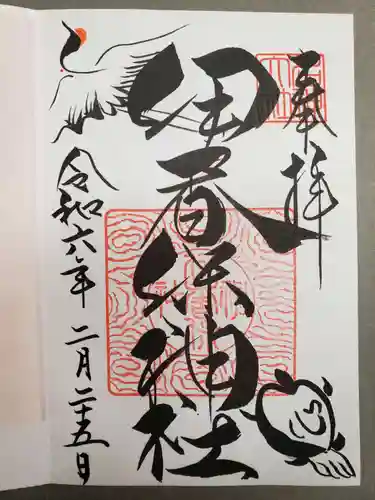 奉拝
伊香保神社
令和六年 二月二十五日